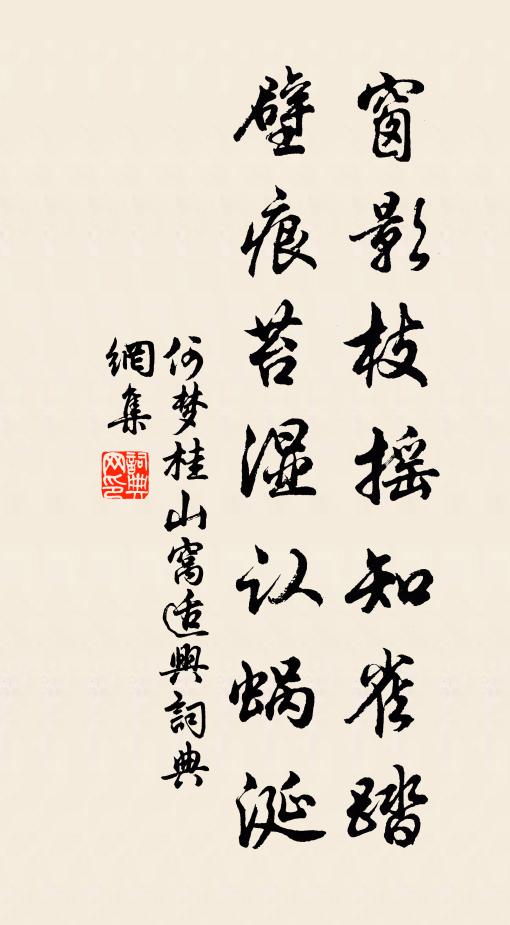 窗影枝摇知雀踏
壁痕苔湿认蜗涎
何梦桂山窝适興詞典
網集
詞典
网印